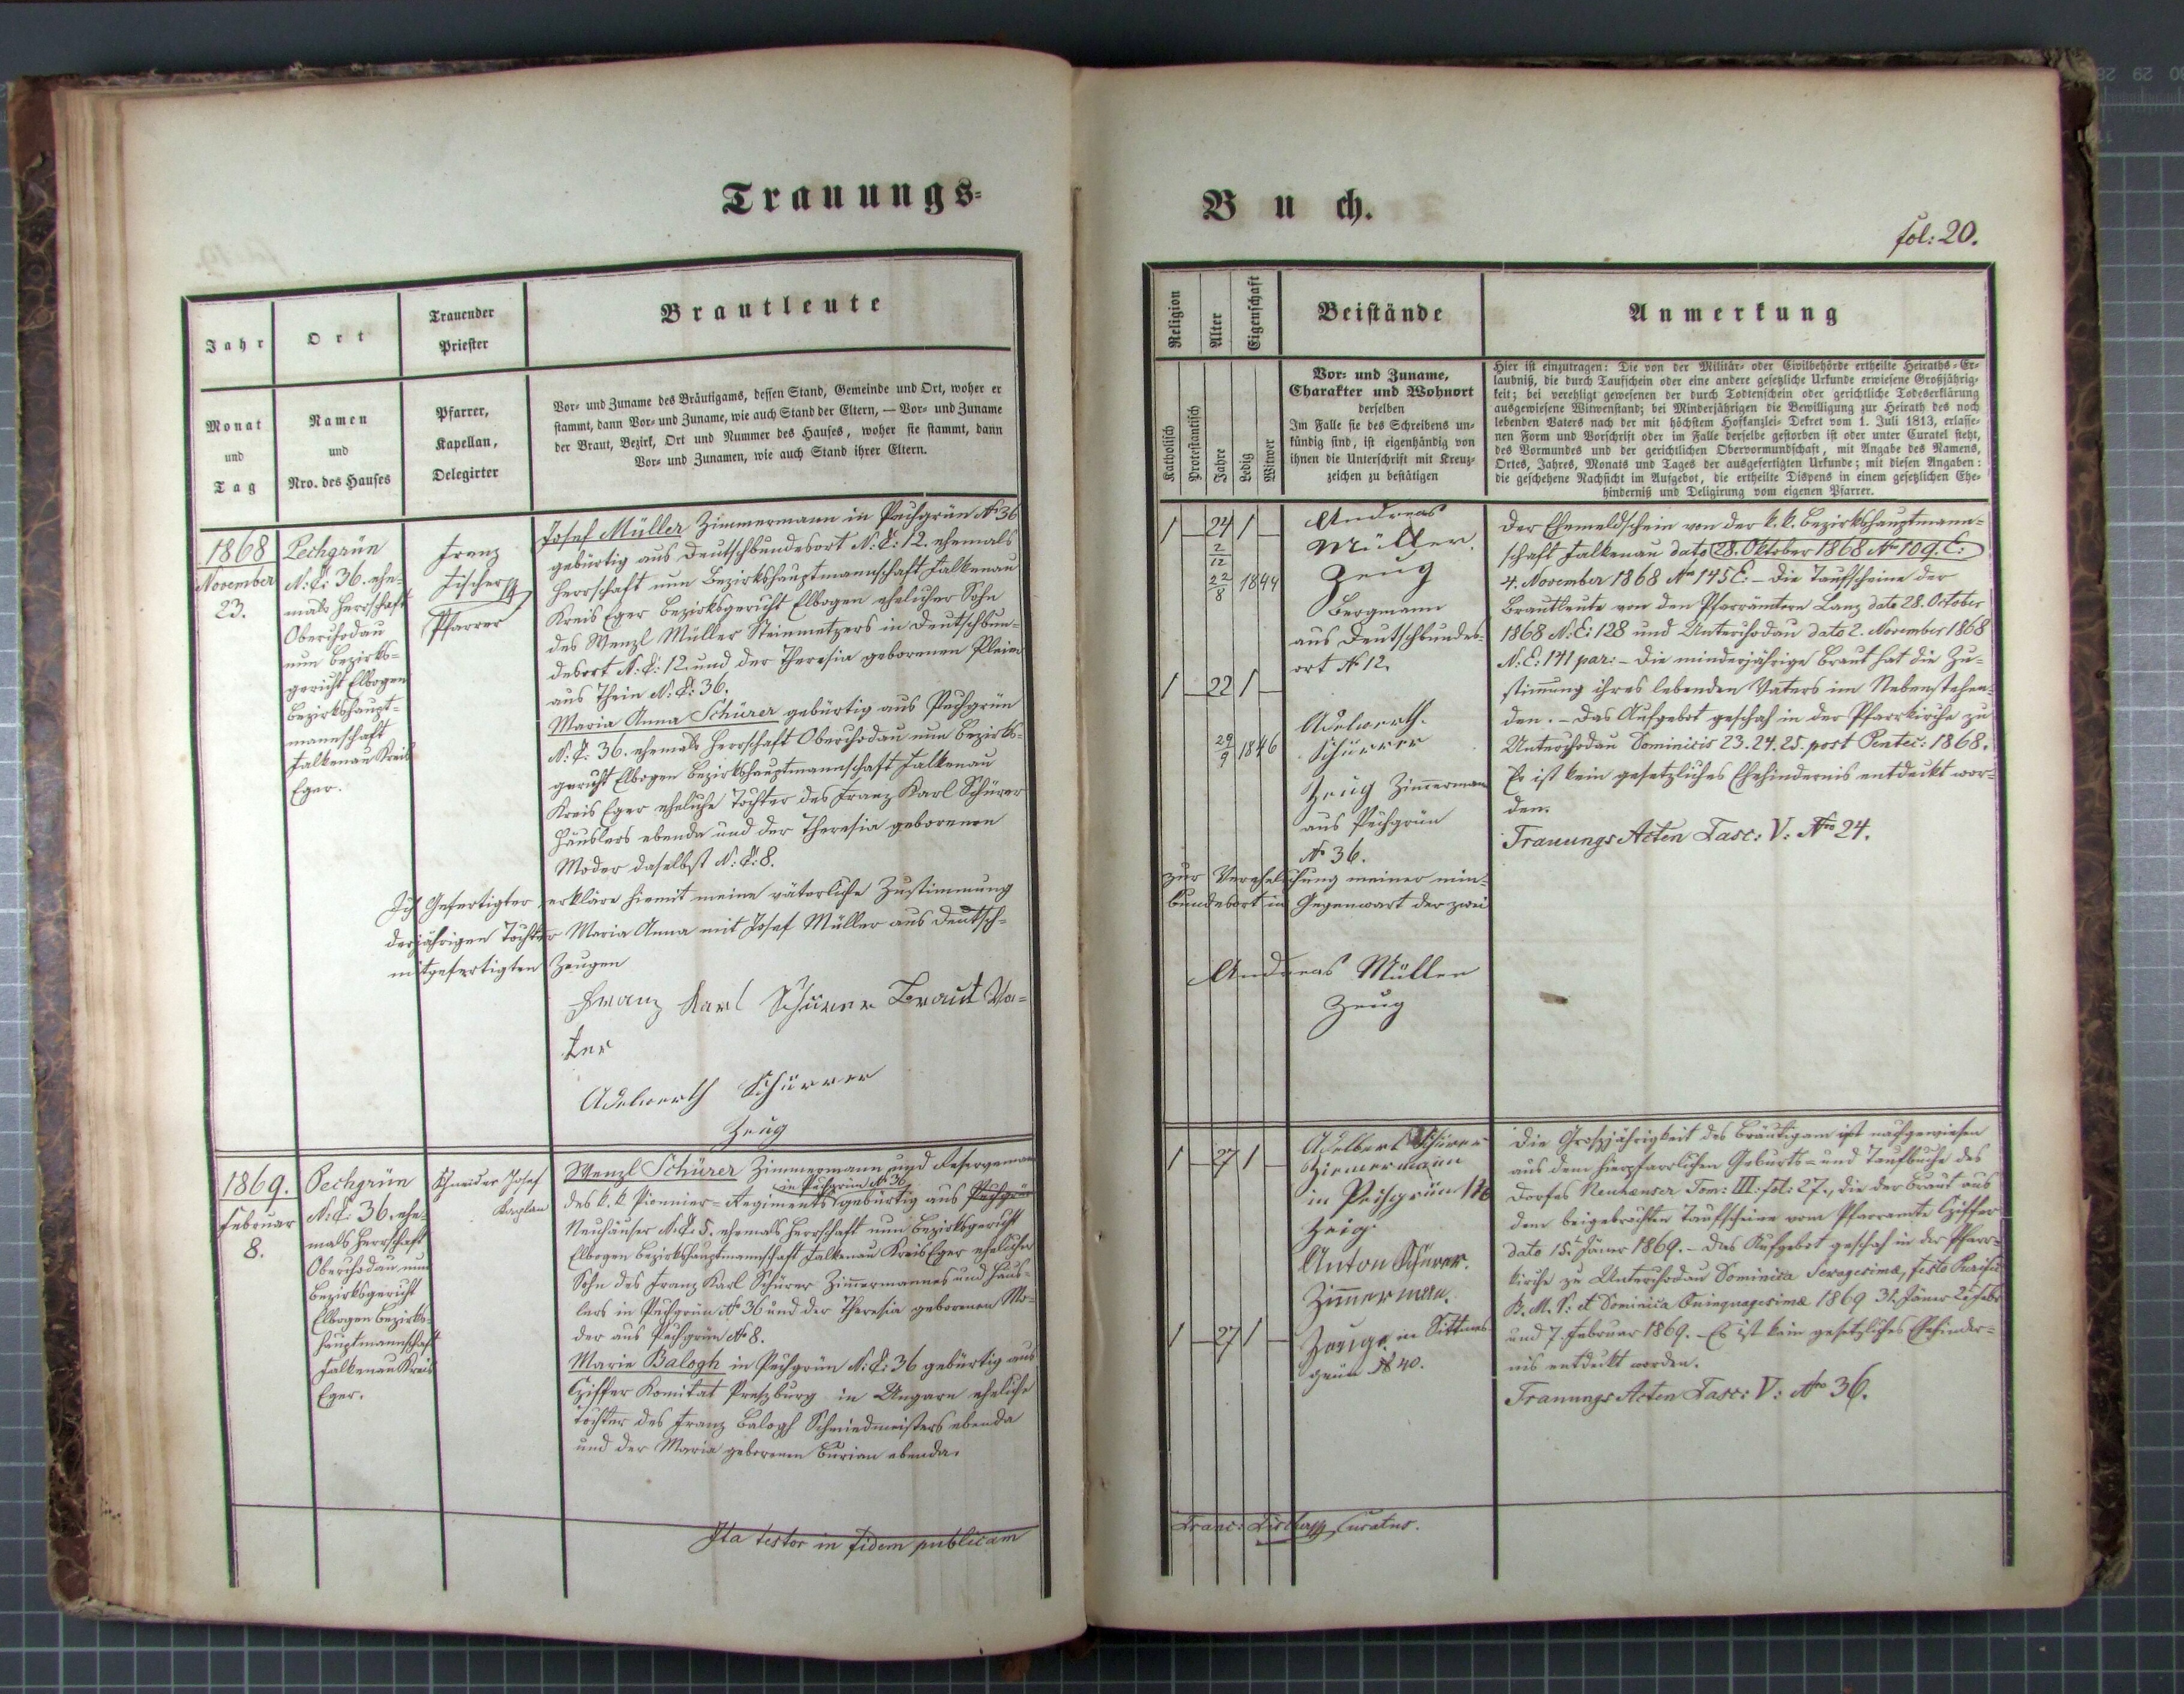 Trauungs=
Jahr
Monat
und
Tag
Ort
Namen
und
Nro. des Hauses
Trauender
Priester
Pfarrer,
Kapellan,
Delegirter
Brautleute
Vor= und Zuname des Bräutigams, dessen Stand, Gemeinde und Ort, woher er
stammt, dann Vor= und Zuname, wie auch Stand der Eltern, — Vor= und Zuname
der Braut, Bezirk, Ort und Nummer des Hauses, woher sie stammt, dann
Vor= und Zunamen, wie auch Stand ihrer Eltern.
1868
November
23.
Pechgrün
N: C: 36. ehe=
mals Herrschaft
Oberchodau
nun Bezirks=
gericht Elbogen
Bezirkshaupt=
mannschaft
Falkenau Kreis
Eger.
Franz
Fischer
Pfarrer
Josef Müller Zimmermann in Pechgrün No 36
gebürtig aus Deutschbundesort N: C: 12. ehemals
Herrschaft nun Bezirkshauptmannschaft Falkenau
Kreis Eger Bezirksgericht Elbogen ehelicher Sohn
des Wenzl Müller Steinmetzers in Deutschbun=
desort N: C: 12 und der Theresia geborenen
aus Thein N: C: 36.
Maria Anna Schürer gebürtig aus Pechgrün
N: C: 36. ehemals Herrschaft Oberchodau nun Bezirks=
gericht Elbogen Bezirkshauptmannschaft Falkenau
Kreis Eger eheliche Tochter des Franz Karl Schürer
Häuslers ebenda und der Theresia geborenen
Moder daselbst N: C: 8.
Ich Gefertigter erkläre hiemit meine väterliche Zustimmung
derjährigen Tochter Maria Anna mit Josef Müller aus Deutsch=
mitgefertigten Zeugen
Franz Karl Schürer Braut Va=
ter
Adelwerth Schürrer
Zeug
1869.
Februar
8.
Pechgrün
N: C: 36. ehe=
mals Herrschaft
Oberchodau nun
Bezirksgericht
Elbogen Bezirks=
hauptmannschaft
Falkenau Kreis
Eger.
Schneider Josef
Kaplan
Wenzl Schürer Zimmermann und Reservemann
in Pechgrün No 36
des k. k Pionnier=Regiments gebürtig aus Pechgrün
Neuhäuser N: C: 5. ehemals Herrschaft nun Bezirksgericht
Elbogen Bezirkshauptmannschaft Falkenau Kreis Eger ehelicher
Sohn des Franz Karl Schürer Zimmermannes und Häus=
lers in Pechgrün No 36 und der Theresia geborenen Mo=
der aus Pechgrün No 8.
Marie Balogh in Pechgrün N: C: 36 gebürtig aus
Cziffer Komitat Preszburg in Ungarn eheliche
Tochter des Franz Balogh Schmiedmeisters ebenda
und der Maria geborenen Burian ebenda.
Ita testor in fidem publicam
Buch.
fol: 20.
Religion
Katholisch
Protestantisch
Alter
Jahre
Eigenschaft
Ledig
Witwer
Beistände
Vor= und Zuname,
Charakter und Wohnort
derselben
Im Falle sie des Schreibens un=
kündig sind, ist eigenhändig von
ihnen die Unterschrift mit Kreuz=
zeichen zu bestätigen
Anmerkung
Hier ist einzutragen: Die von der Militär= oder Civilbehörde ertheilte Heiraths=Er=
laubniß, die durch Taufschein oder eine andere gesetzliche Urkunde erwiesene Großjährig=
keit; bei verehligt gewesenen der durch Todtenschein oder gerichtliche Todeserklärung
ausgewiesene Witwenstand; bei Minderjährigen die Bewilligung zur Heirath des noch
lebenden Vaters nach der mit höchstem Hofkanzlei=Dekret vom 1. Juli 1813, erlasse=
nen Form und Vorschrift oder im Falle derselbe gestorben ist oder unter Curatel steht,
des Vormundes und der gerichtlichen Obervormundschaft, mit Angabe des Namens,
Ortes, Jahres, Monats und Tages der ausgefertigten Urkunde; mit diesen Angaben:
die geschehene Nachsicht im Aufgebot, die ertheilte Dispens in einem gesetzlichen Ehe=
hinderniß und Deligirung vom eigenen Pfarrer.
1 — 24 1 —
2/12
22/8 1844
1 — 22 1 —
29/9 1846
Andreas
Müller.
Zeug
Bergmann
aus Deutschbundes=
ort No 12.
Adelwerth.
Schürrer
Zeug Zimmermann
aus Pechgrün
No 36.
zur Verehelichung meiner min=
bundesort in Gegenwart der zwei
Andreas Müller
Zeug
Der Ehemeldschein von der k. k. Bezirkshauptmann=
schaft Falkenau dato 28. Oktober 1868 No 109. E:
4. November 1868 No 145 E: — Die Taufscheine der
Brautleute von den Pfarrämtern Lanz dato 28. October
1868 N: E: 128 und Unterchodau dato 2. November 1868
N: E: 141 par: — Die minderjährige Braut hat die Zu=
stimung ihres lebenden Vaters im Nebenstehen=
den. — Das Aufgebot geschah in der Pfarrkirche zu
Unterchodau Dominicis 23. 24. 25. post Pentec: 1868.
Es ist kein gesetzliches Ehehindernis entdeckt wor=
den.
Trauungs Acten Fasc: V: Nro 24.
1 — 27 1 —
1 — 27 1 —
Adelbert Schürer
Zimermann
in Pechgrün
Zeig
Anton Schürer.
Zimmerman.
Zeuge. in Sittmes=
grün No 40.
Die Großjährigkeit des Bräutigam ist nachgewiesen
aus dem hierpfarrlichen Geburts= und Taufbuche des
Dorfes Neuhäuser Tom: III: fol: 27., die der Braut aus
dem beigebrachten Taufscheine vom Pfarramte Cziffer
dato 15. Jäner 1869. — Das Aufgebot geschah in der Pfarr=
kirche zu Unterchodau Dominica Sexagesimæ, festo Purific
B. M. V: et Dominica Quinquagesimæ 1869 31. Jäner 2. Febr
und 7. Februar 1869. — Es ist kein gesetzliches Ehehinder=
nis entdeckt worden.
Trauungs Acten Fasc: V: Nro 36.
Franc: Fischer Curatus.